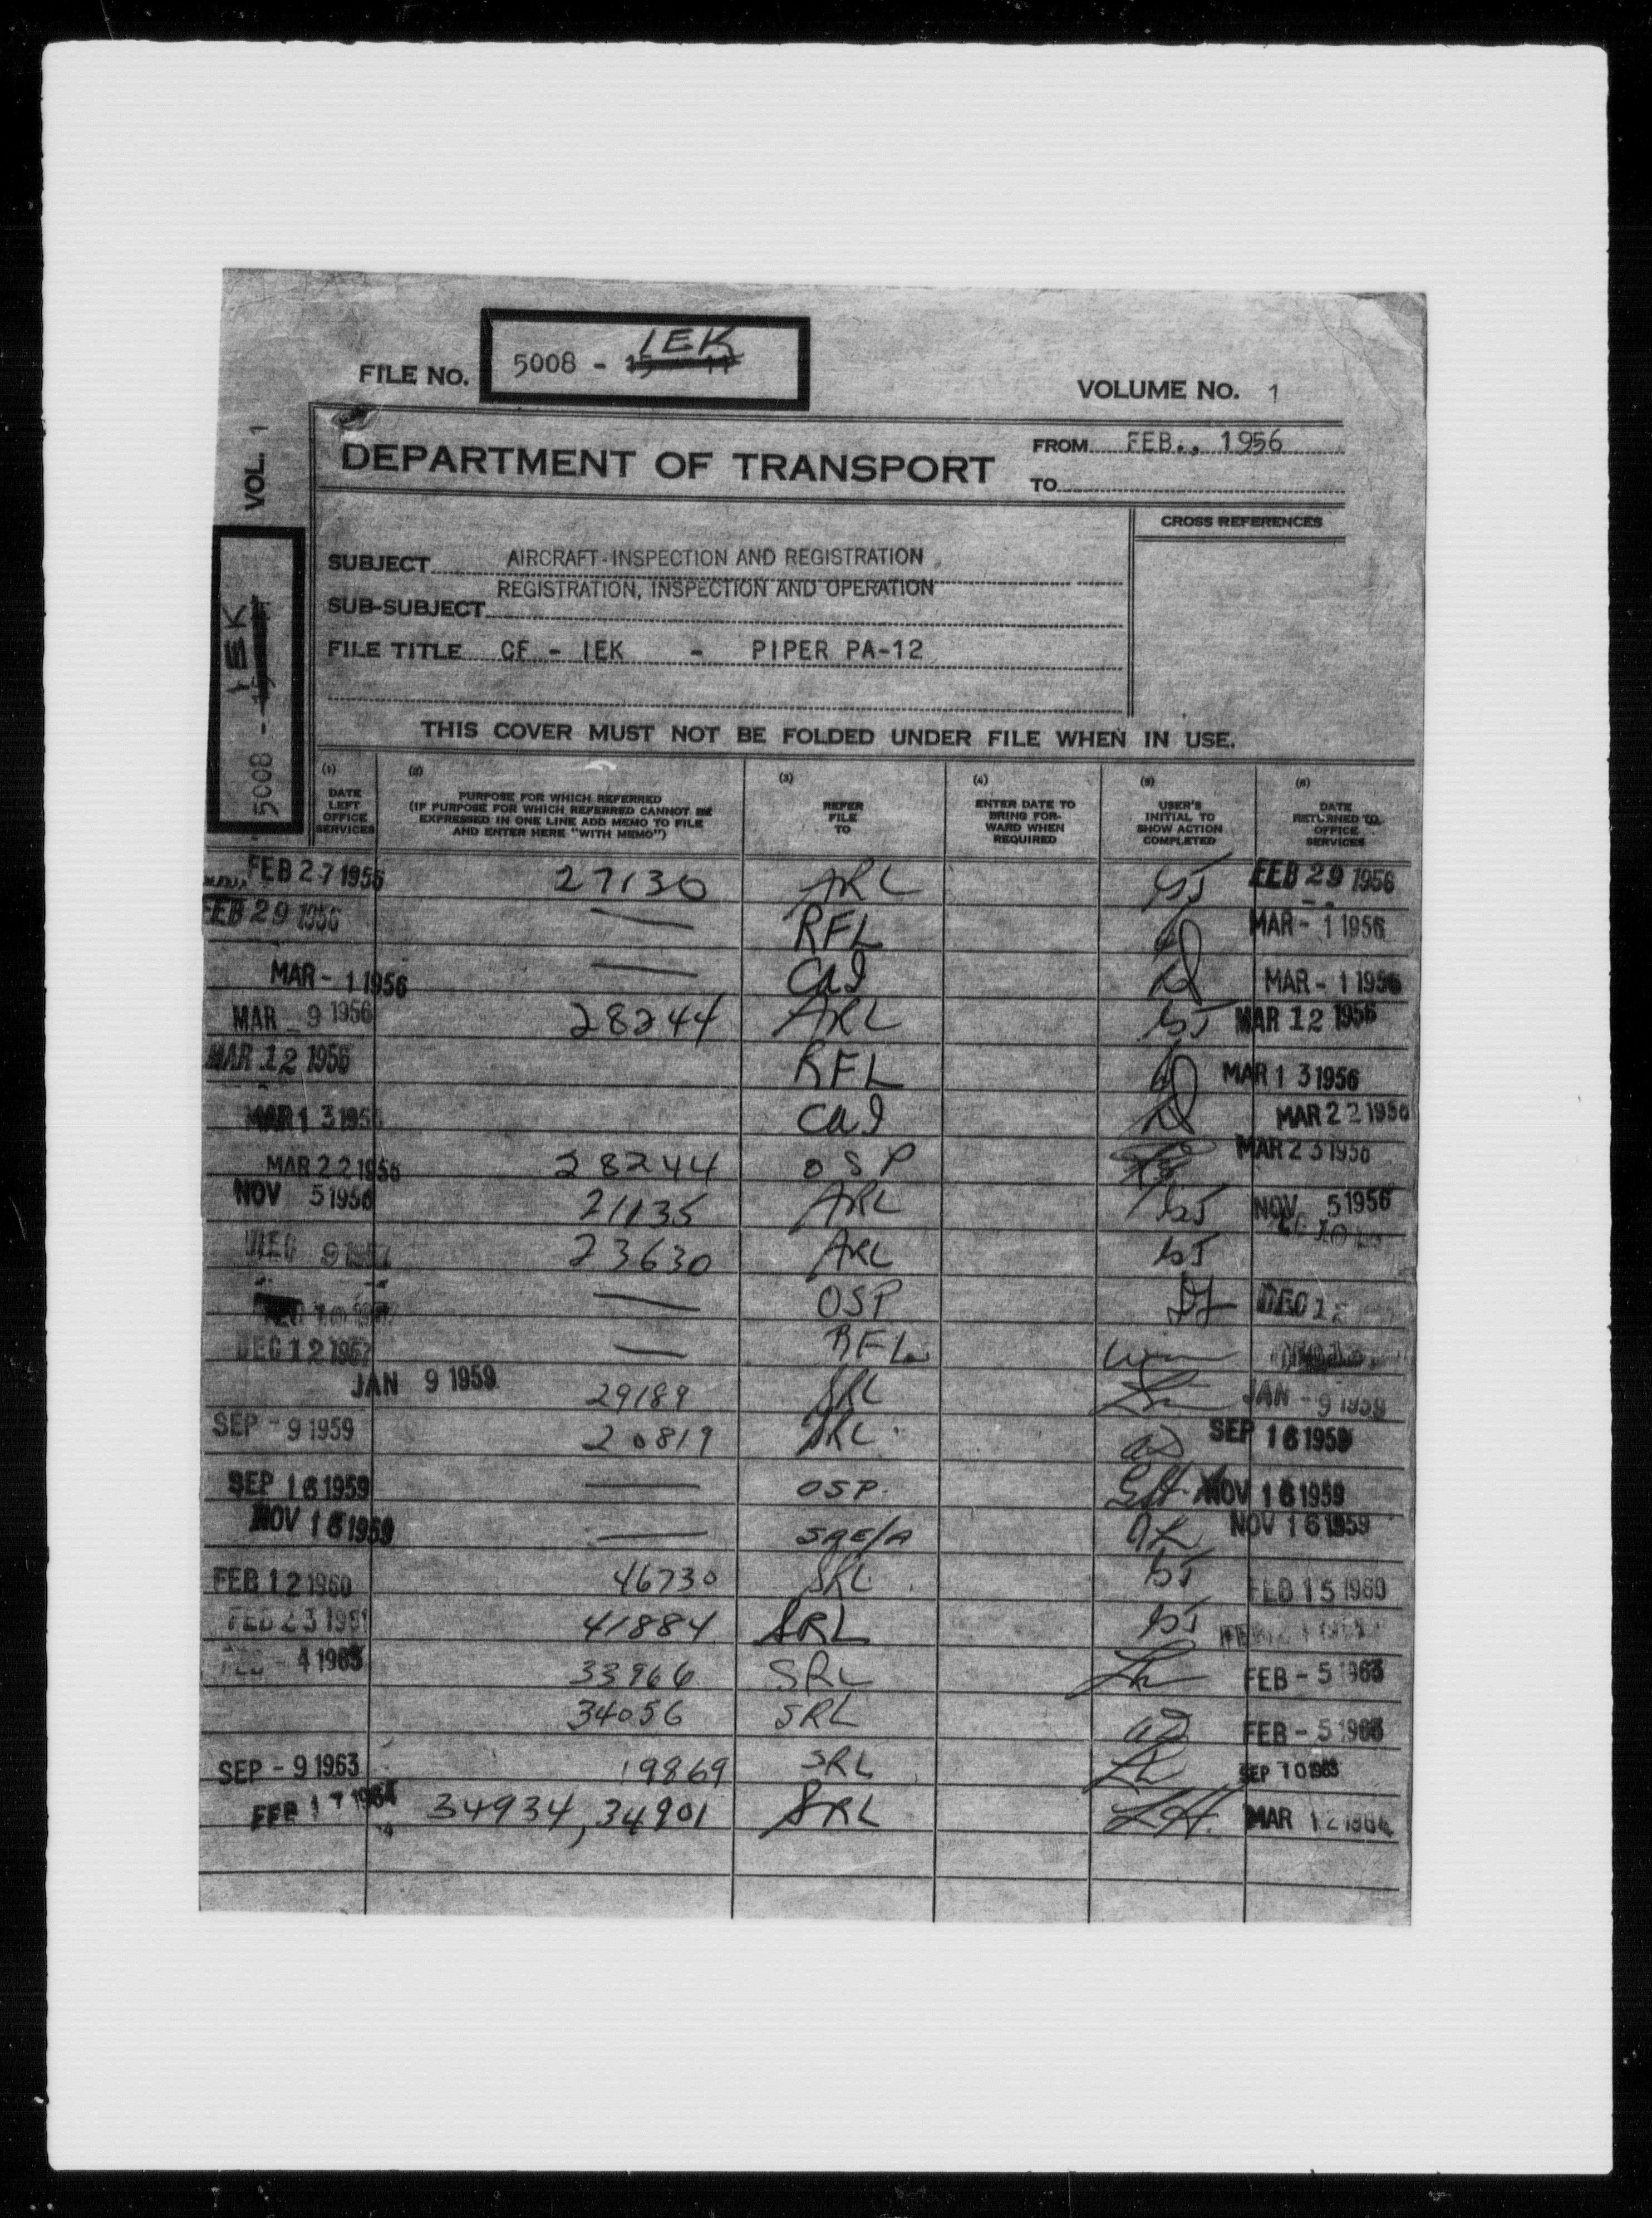 IEK
FILE No. 5008 -
VOLUME No. 1
VOL. 1
DEPARTMENT OF TRANSPORT
FROM FEB., 1956
TO
CROSS REFERENCES
SUBJECT AIRCRAFT-INSPECTION AND REGISTRATION
REGISTRATION, INSPECTION AND OPERATION
SUB-SUBJECT
FILE TITLE CF - IEK - PIPER PA-12
5008 - IEK
THIS COVER MUST NOT BE FOLDED UNDER FILE WHEN IN USE.
(1) DATE LEFT OFFICE SERVICES
(2) PURPOSE FOR WHICH REFERRED
(IF PURPOSE FOR WHICH REFERRED CANNOT BE
EXPRESSED IN ONE LINE ADD MEMO TO FILE
AND ENTER HERE "WITH MEMO")
(3) REFER FILE TO
(4) ENTER DATE TO BRING FOR-WARD WHEN REQUIRED
(5) USER'S INITIAL TO SHOW ACTION COMPLETED
(6) DATE RETURNED TO OFFICE SERVICES
FEB 27 1956 27130 ARL FEB 29 1956
FEB 29 1956 — RFL MAR - 1 1956
MAR - 1 1956 — CAI MAR - 1 1956
MAR 9 1956 28244 ARL MAR 12 1956
MAR 12 1956 RFL MAR 13 1956
MAR 13 1956 CAI MAR 22 1956
MAR 22 1956 28244 OSP MAR 23 1956
NOV 5 1956 21135 ARL NOV 5 1956
DEC 9 23630 ARL
— OSP DEC 12
DEC 12 1957 — RFL
JAN 9 1959 29189 SRL JAN - 9 1959
SEP - 9 1959 20819 SRL SEP 16 1959
SEP 16 1959 — OSP. NOV 16 1959
NOV 16 1959 — SAE/A NOV 16 1959
FEB 12 1960 46730 SRL FEB 15 1960
FEB 23 1961 41884 SRL
FEB - 4 1963 33966 SRL FEB - 5 1963
34056 SRL FEB - 5 1963
SEP - 9 1963 19869 SRL SEP 10 1963
FEB 17 1964 34934, 34901 SRL LH. MAR 12 1964